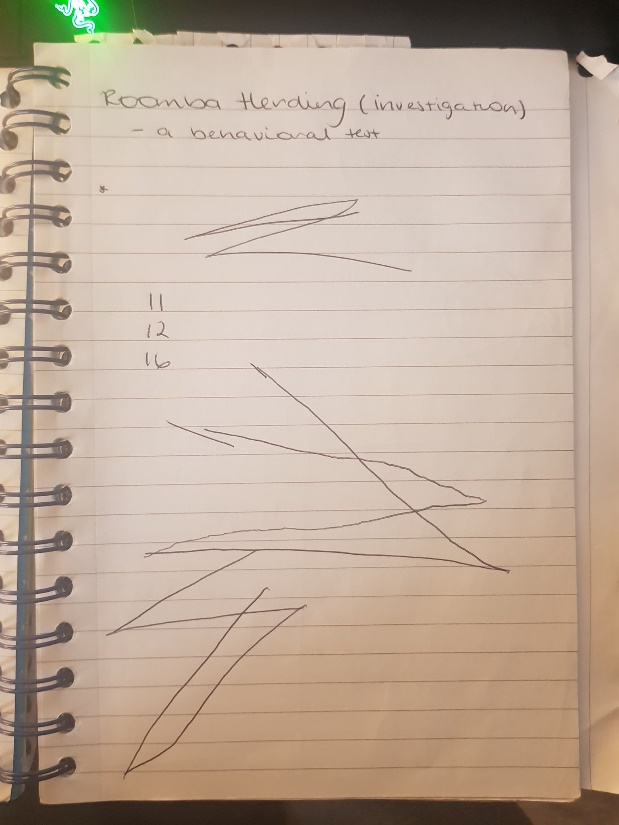 Roomba Herding (investigation)
- a behavioral test
*
11
12
16